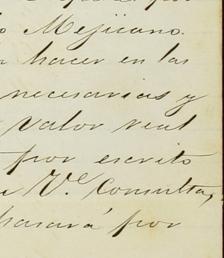 Mejicano.
hacer en las
necesarias y
valor real
por escrito
V.e Consulta,
pasará por